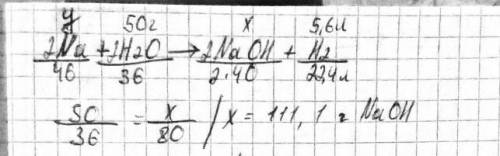 y 50г x 5,6л
2Na + 2H2O → 2NaOH + H2
46 36 2·40 22,4л
50/36 = x/80 / x = 111,1 г NaOH